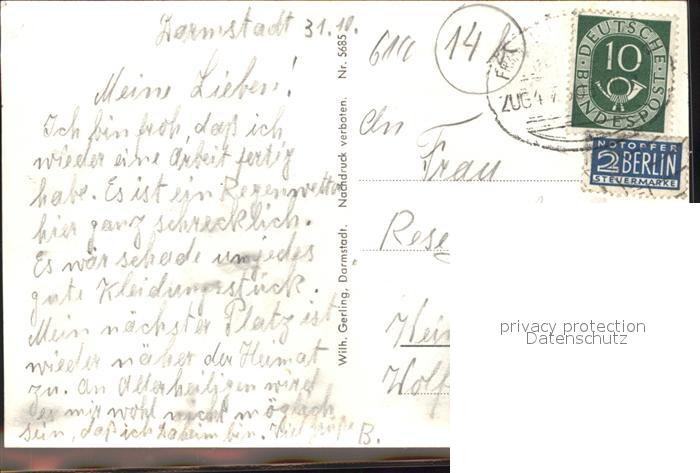 Darmstadt 31.10.
Meine Lieben!
Ich bin froh, daß ich
wieder eine Arbeit fertig
habe. Es ist ein Regenwetter
hier ganz schrecklich.
Es wär schade um jedes
gute Kleidungsstück.
Mein nächster Platz ist
wieder näher der Heimat
zu. An Allerheiligen wird
es mir wohl nicht möglich
sein, daß ich daheim bin. Viel Grüße B.
Wilh. Gerling, Darmstadt. Nachdruck verboten. Nr. 5685
14
ZUG 4
DEUTSCHE BUNDESPOST
10
NOTOPFER
2 BERLIN
STEUERMARKE
An
Frau
Rese
Wolf
privacy protection
Datenschutz